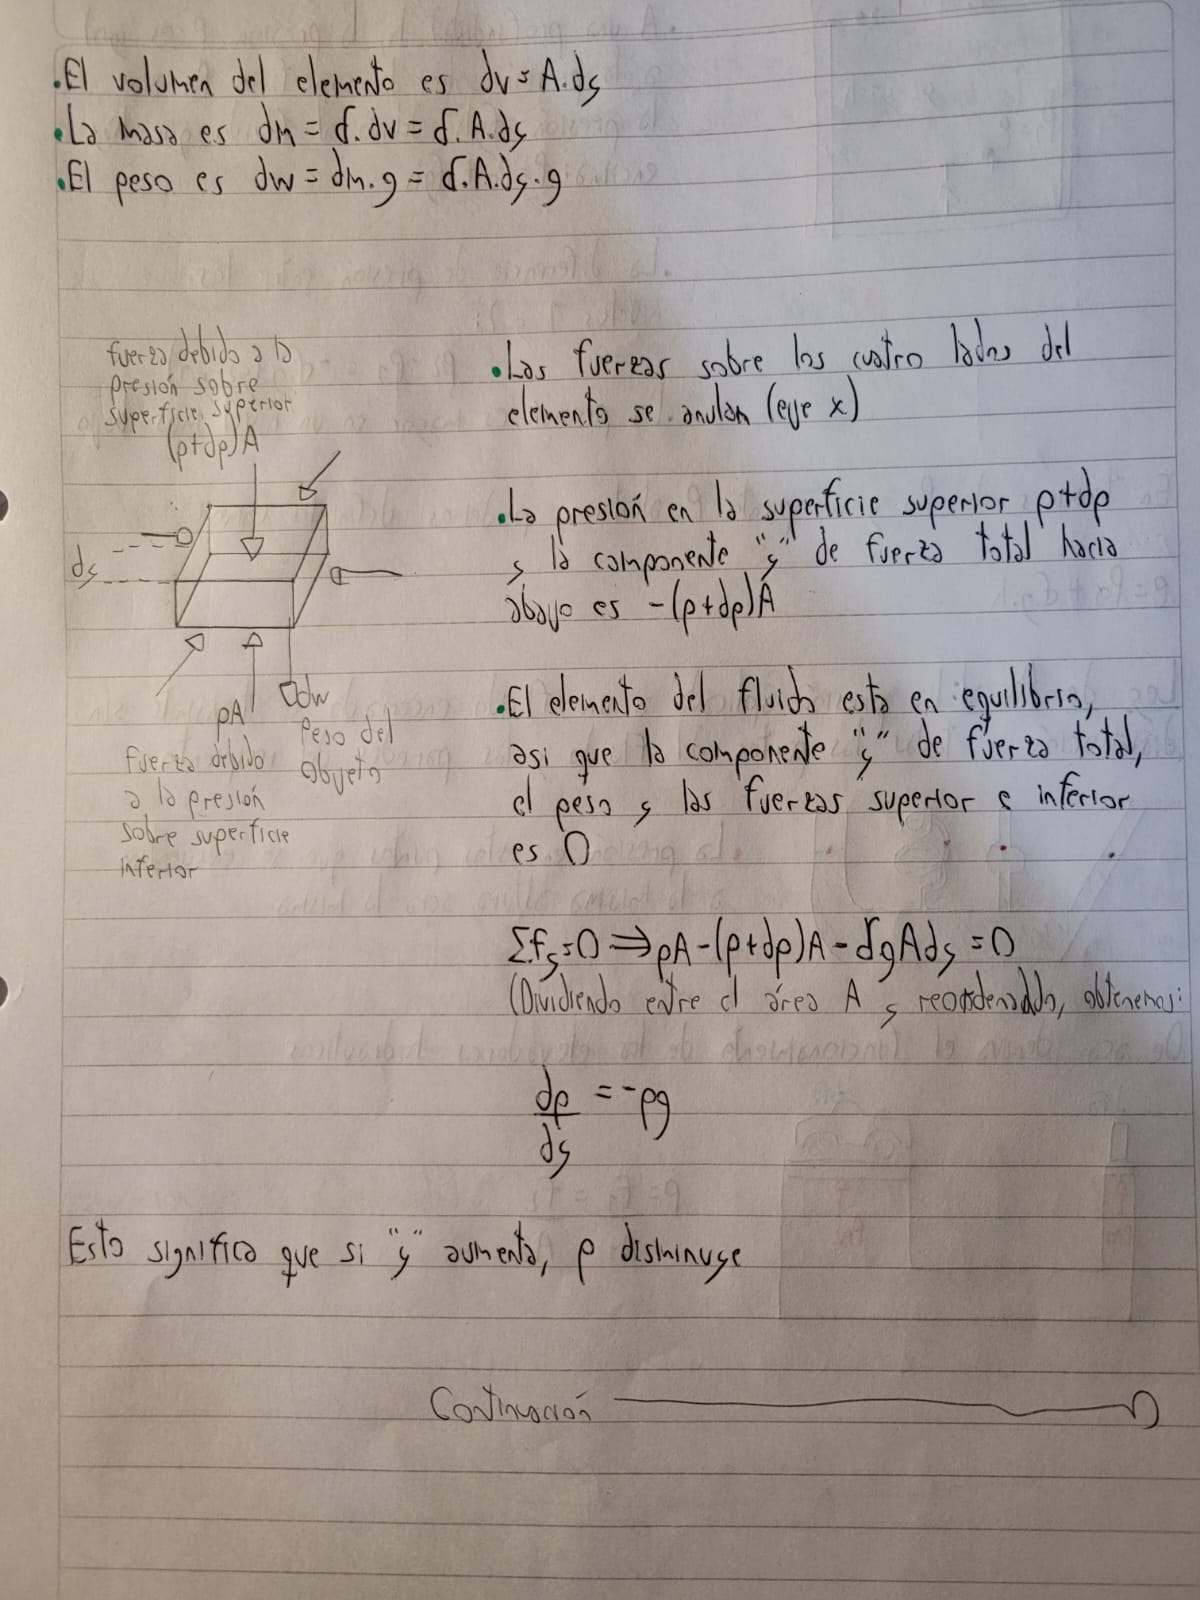 .El volumen del elemento es dv = A.dy
.La masa es dm = δ.dv = δ.A.dy
.El peso es dw = dm.g = δ.A.dy.g
fuerza debido a la
presión sobre
superficie superior
(p+dp)A
dy
pA
dw
Peso del
objeto
fuerza debido
a la presión
sobre superficie
inferior
.Las fuerzas sobre los cuatro lados del
elemento se anulan (eje x)
.La presión en la superficie superior p+dp
y la componente "y" de fuerza total hacia
abajo es -(p+dp)A
.El elemento del fluido esta en equilibrio,
asi que la componente "y" de fuerza total,
el peso y las fuerzas superior e inferior
es 0
Σfy=0 ⇒ pA-(p+dp)A-δgAdy = 0
(Dividiendo entre el área A y reordenado, obtenemos:
dp/dy = -pg
Esto significa que si "y" aumenta, p disminuye
Continuación